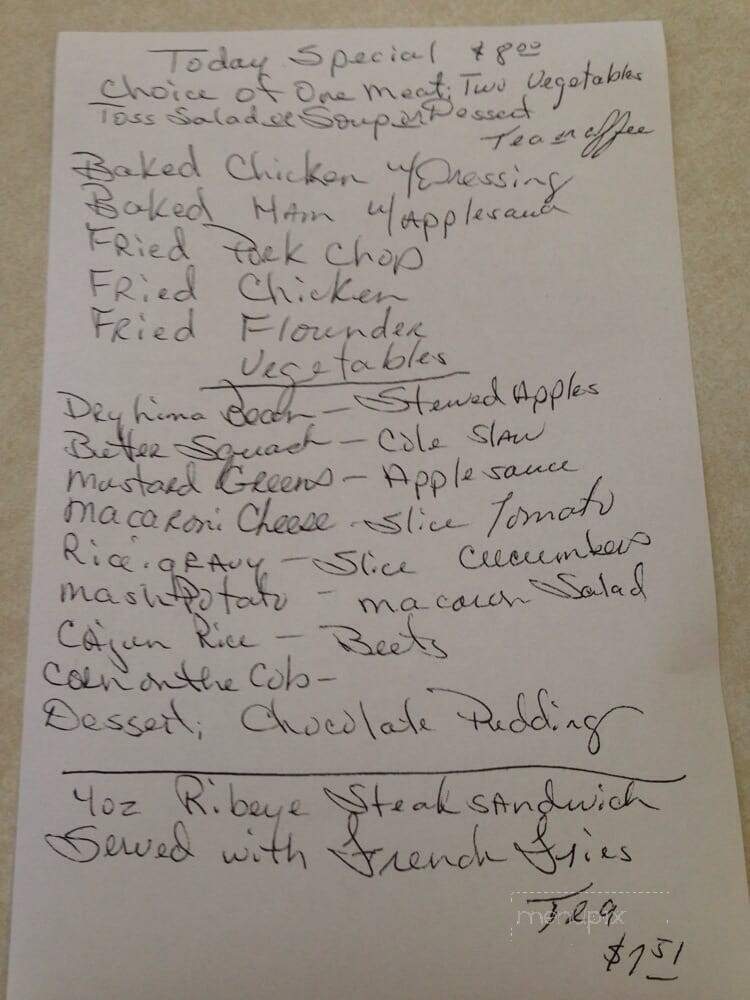 Today Special $8.00
Choice of One Meat; Two Vegetables
Toss Salad or Soup or Dessert
Tea or Coffee
Baked Chicken w/Dressing
Baked Ham w/Applesauce
Fried Pork Chop
Fried Chicken
Fried Flounder
Vegetables
Dry Lima Bean - Stewed Apples
Butter Squash - Cole Slaw
Mustard Greens - Apple sauce
Macaroni Cheese - Slice Tomato
Rice. gravy - Slice Cucumbers
Mash Potato - macaroni Salad
Cajun Rice - Beets
Corn on the Cob -
Dessert; Chocolate Pudding
4oz Ribeye Steak Sandwich
Served with French Fries
Tea
menupix